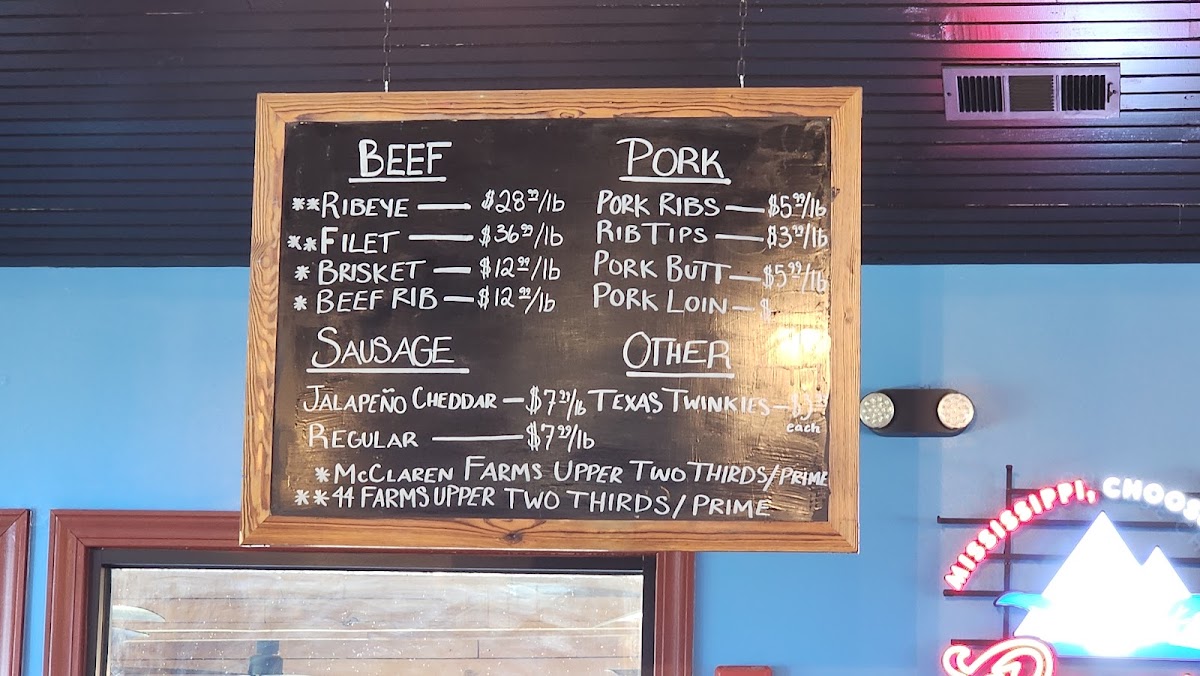 BEEF
**RIBEYE — $28.99/lb
**FILET — $36.99/lb
*BRISKET — $12.99/lb
*BEEF RIB — $12.99/lb
PORK
PORK RIBS — $5.99/lb
RIB TIPS — $3.99/lb
PORK BUTT — $5.99/lb
PORK LOIN — $
SAUSAGE
JALAPEÑO CHEDDAR — $7.99/lb
REGULAR — $7.99/lb
OTHER
TEXAS TWINKIES —
each
*MCCLAREN FARMS UPPER TWO THIRDS/PRIME
**44 FARMS UPPER TWO THIRDS/PRIME
MISSISSIPPI, CHOOS